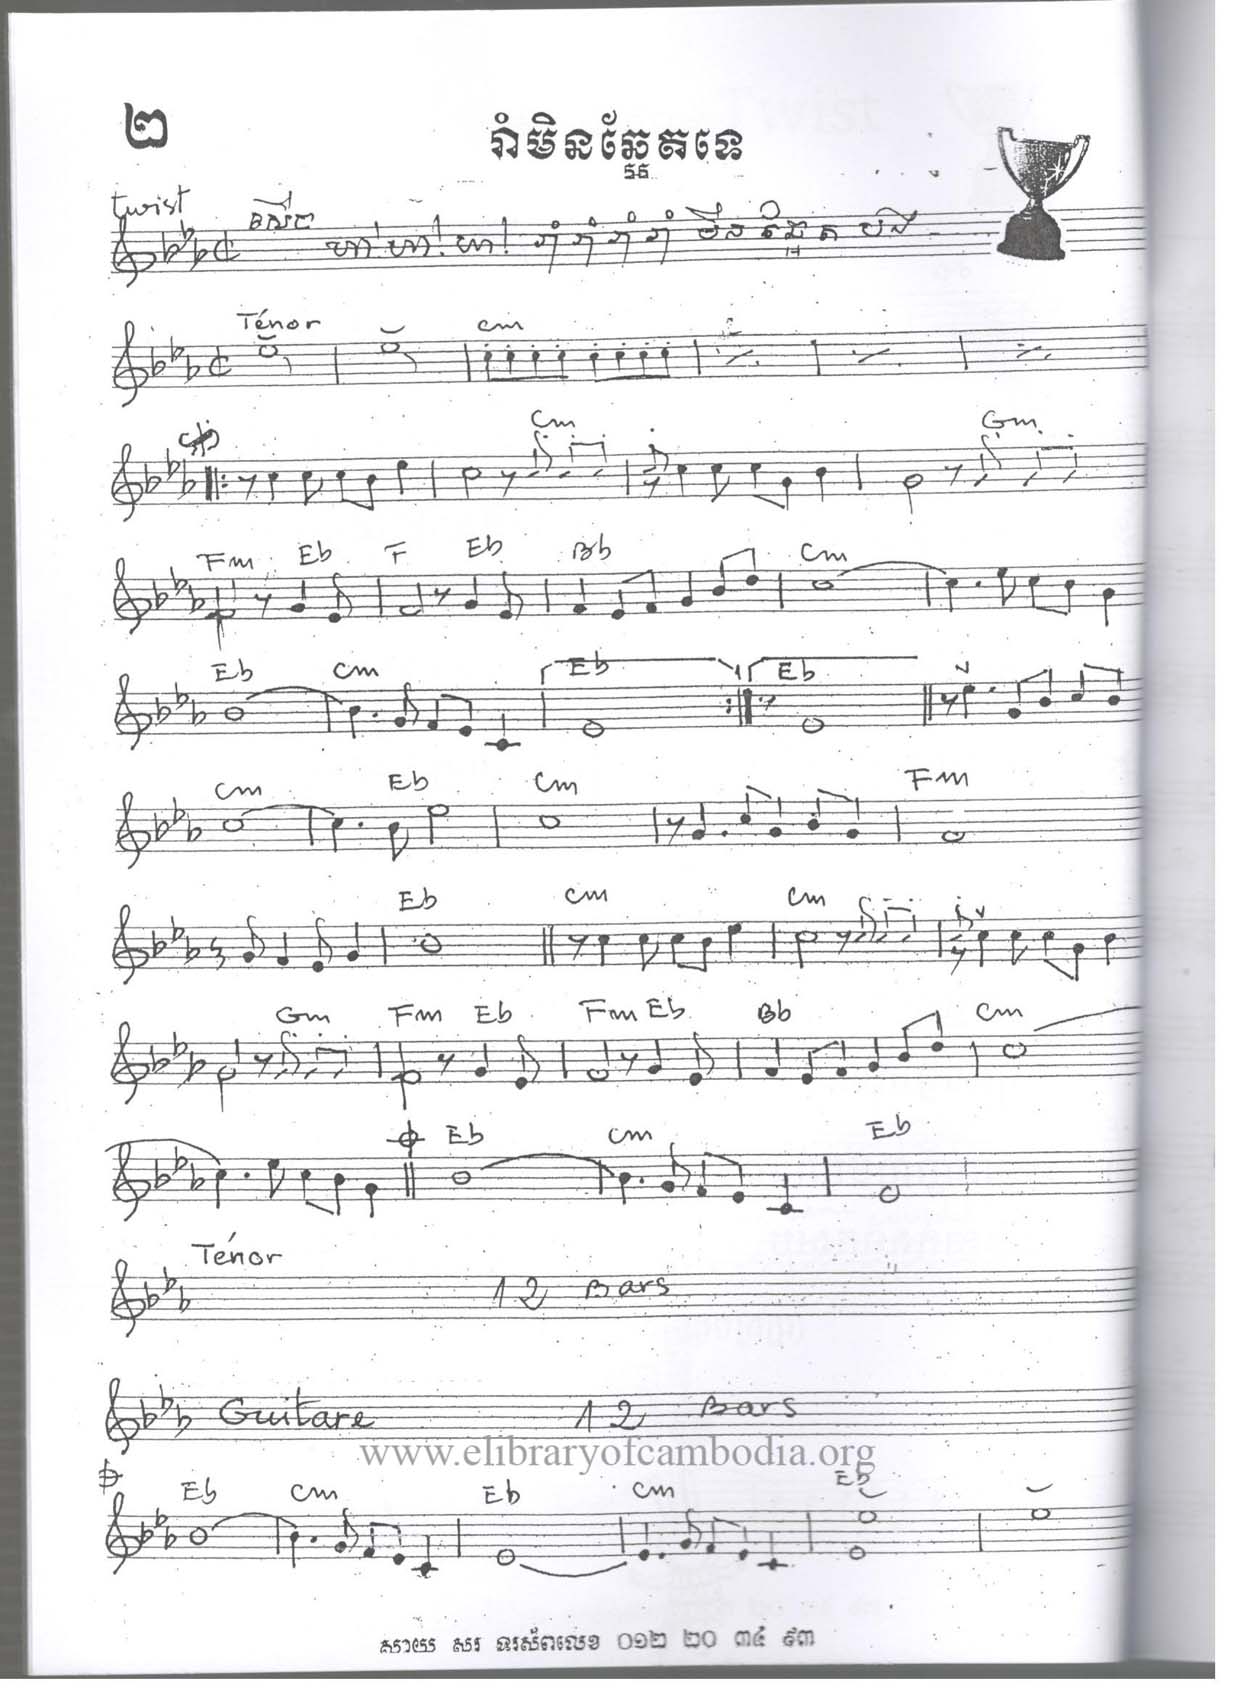 ២
រាំមិនឆ្អែតទេ
twist
ហា! ហា! ហា! រាំ រាំ រាំ រាំ មិន ឆ្អែត
Ténor cm
Cm Gm
Fm Eb F Eb Bb Cm
Eb Cm Eb Eb
Cm Eb Cm Fm
Eb Cm Cm
Gm Fm Eb Fm Eb Bb Cm
Eb Cm Eb
Ténor
12 Bars
Guitare 12 Bars
www.elibraryofcambodia.org
Eb Cm Eb Cm Eb
សាយ សរ ទូរស័ព្ទលេខ ០១២ ២០ ៣៤ ៩៣